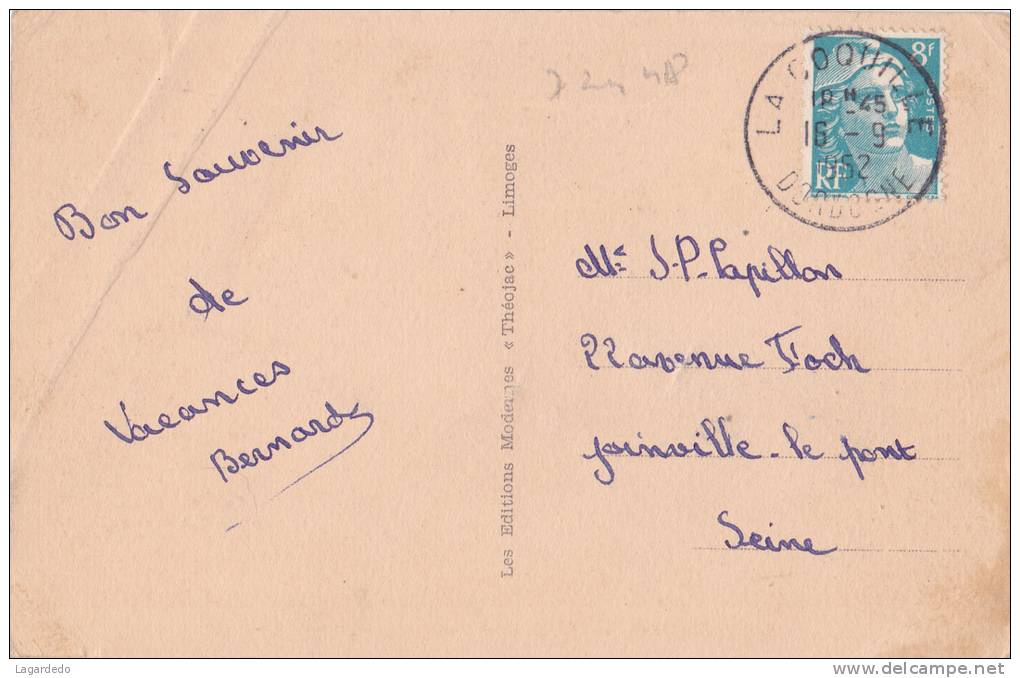 Bon Souvenir
de
Vacances
Bernard
Les Editions Modernes « Théojac » - Limoges
8f
POSTES
RF
LA COQUILLE
18 H 45
16 - 9
952
DORDOGNE
J.P. Papillon
22 avenue Foch
joinville-le pont
Seine
Lagardedo
www.delcampe.net